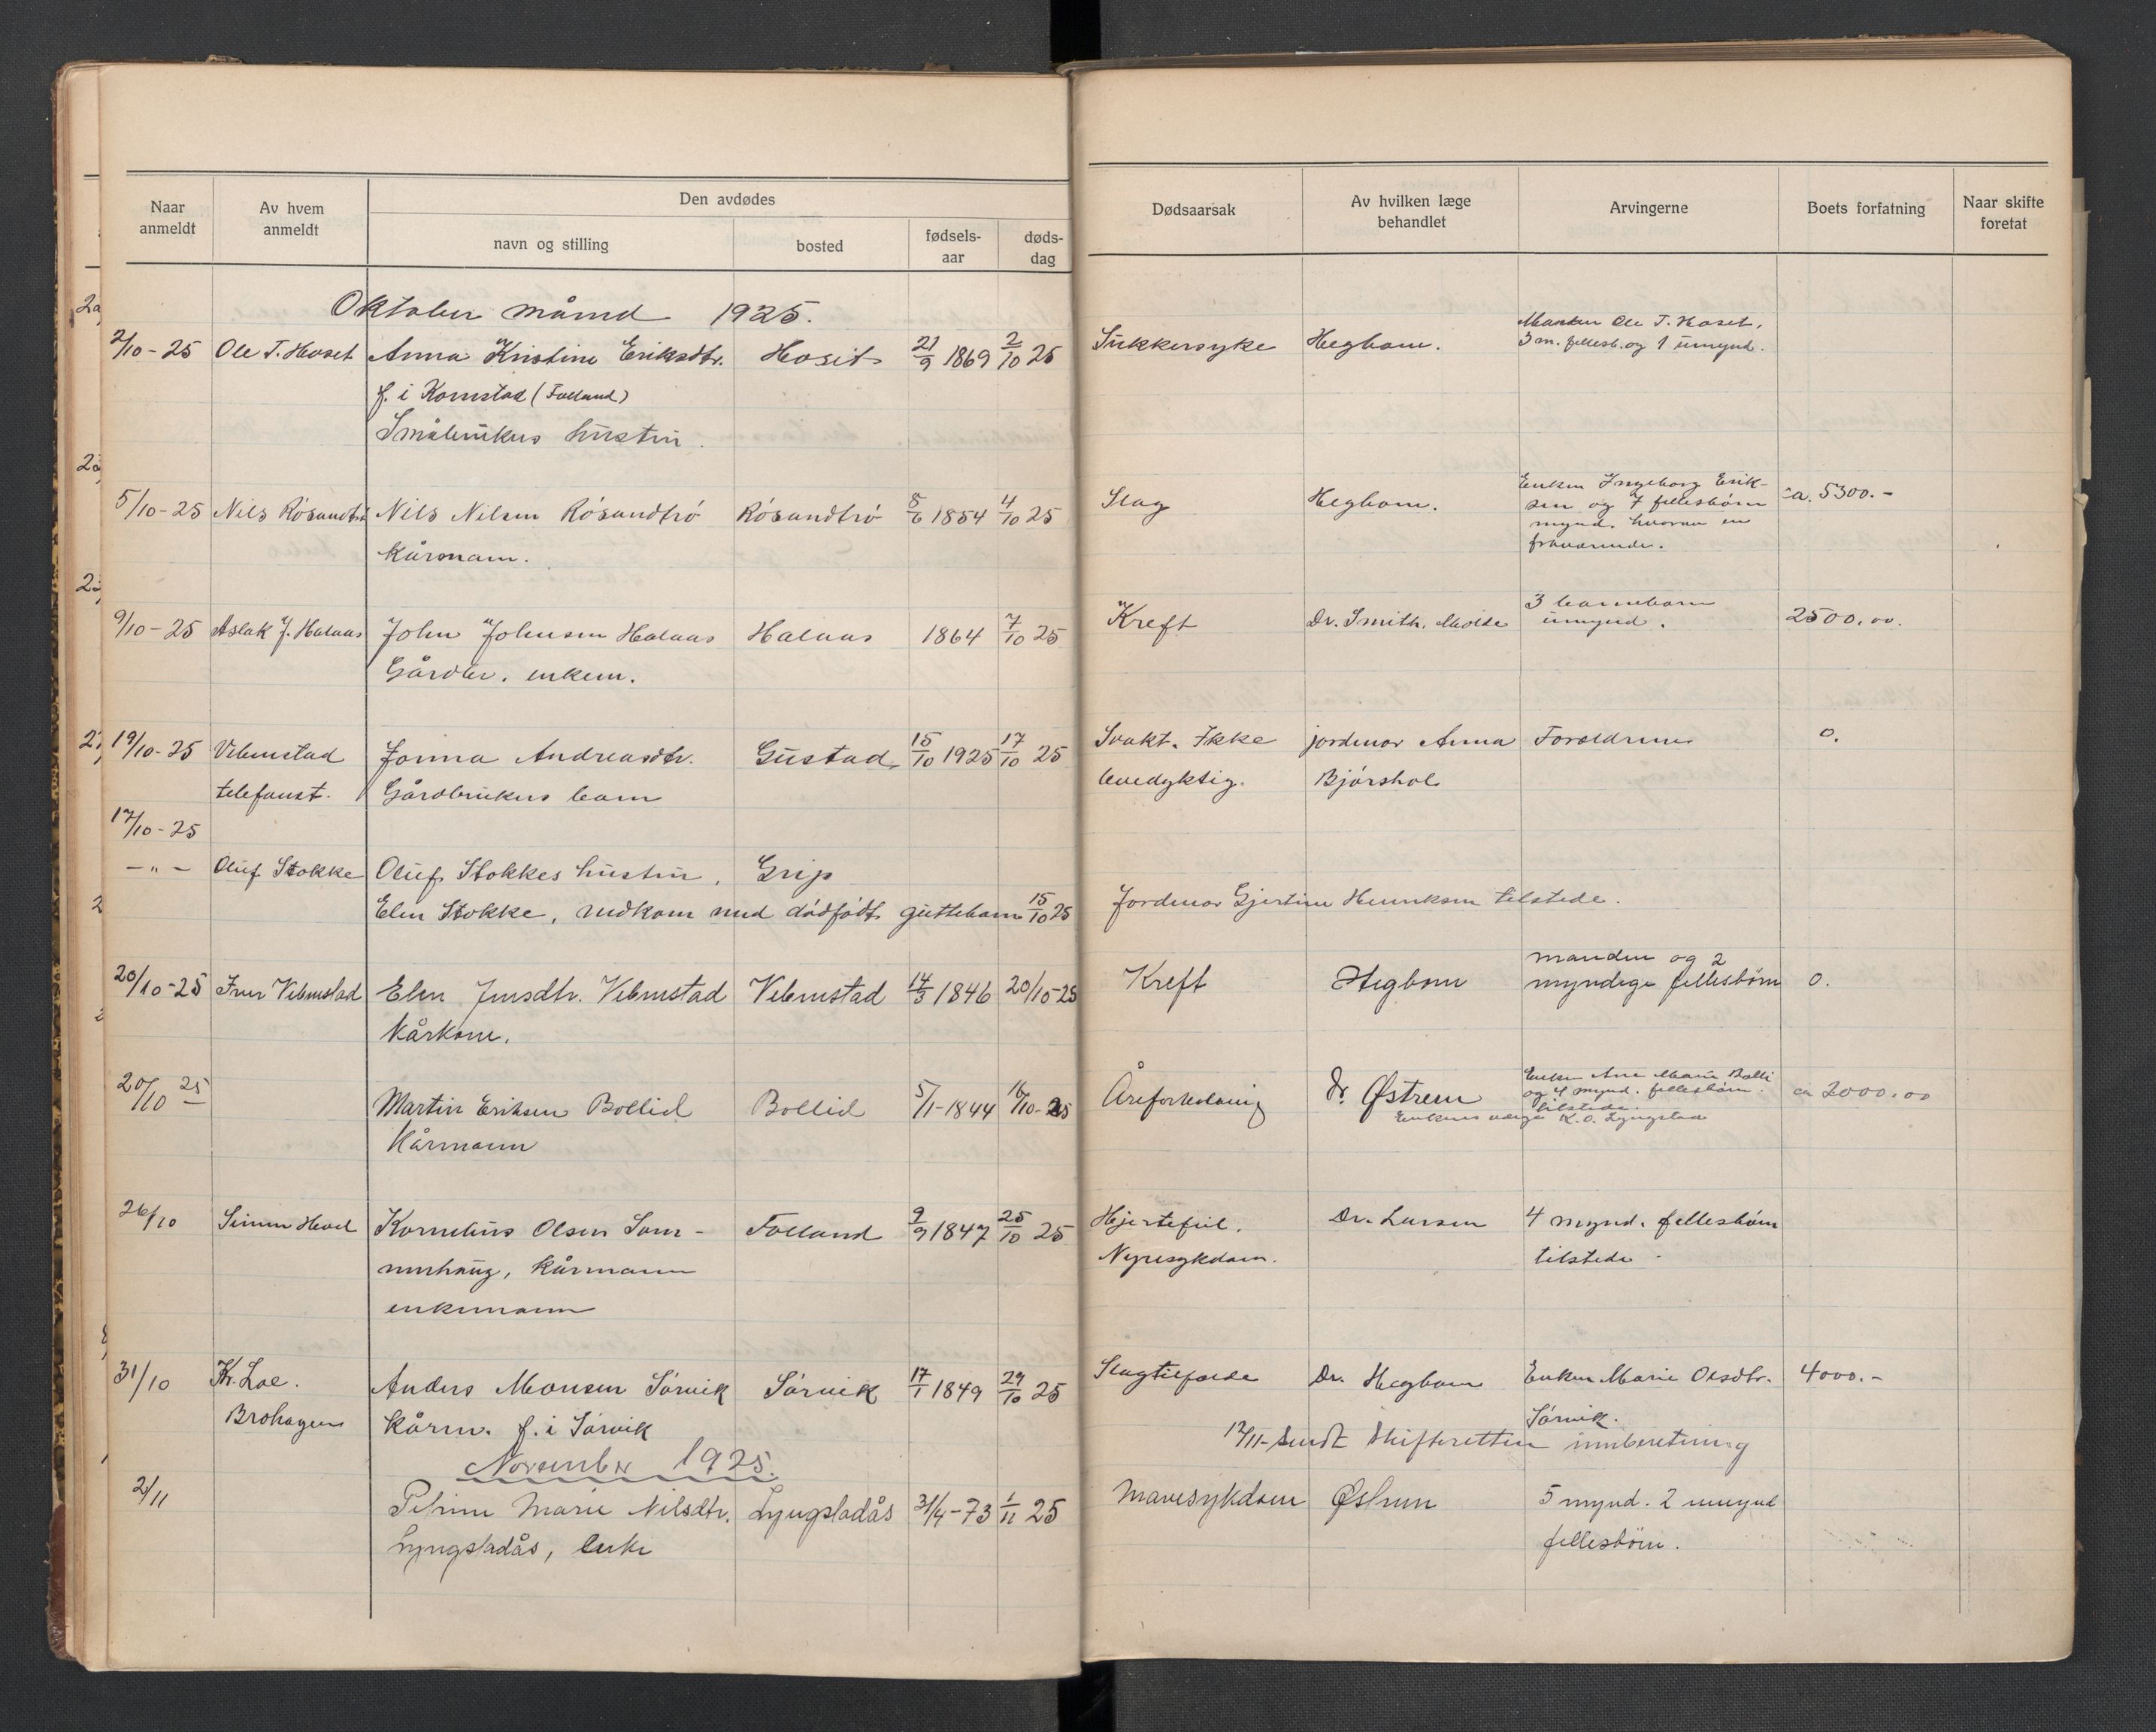 Naar anmeldt
Av hvem anmeldt
Den avdødes
navn og stilling
bosted
fødsels-aar
døds-dag
Dødsaarsak
Av hvilken læge behandlet
Arvingerne
Boets forfatning
Naar skifte foretat
Oktober måned 1925.
2/10-25 Ole T. Hoset Anna Kristine Eriksdtr. Hoset 21/9 1869 2/10 25 Sukkersyke Hegbom. Manden Ole T. Hoset,
3 m. fellesb. og 1 umynd.
f. i Kornstad (Folland)
Småbrukers hustru.
5/10-25 Nils Rösandtrö Nils Nilsen Rösandtrö Rösandtrö 8/6 1854 4/10 25 Slag Hegbom. Enken Ingeborg Erik-
sen og 7 fellesbørn ca. 5300.-
mynd. hvorav en
fraværende.
Kårmann.
9/10-25 Aslak J. Halaas John Johnsen Halaas Halaas 1864 7/10 25 Kreft Dr. Smith, Molde 3 barnebarn
umynd. 2500.00.
Gårdbr. enkem.
19/10-25 Vebenstad Jonna Andreasdtr. Gustad 15/10 1925 17/10 25 Svakt. Ikke jordmor Anna Forældrene 0.
telefonst. Gårdbrukers barn levedyktig. Bjørshol
17/10-25
-"- Oluf Stokke Oluf Stokkes hustru, Grip
Elen Stokke, nedkom med dödfödt guttebarn 15/10 25 Jordmor Gjertine Henriksen tilstede.
20/10-25 Iver Vebenstad Elen Jensdtr. Vebenstad Vebenstad 14/3 1846 20/10-25 Kreft Hegbom manden og 2
myndige fellesbørn 0.
Kårkone.
20/10 25 Martin Eriksen Bollid Bollid 5/1-1844 16/10-25 Åreforkalkning Dr. Østrem Enken Ane Marie Bolli
og 4 mynd. fellesbørn ca 2000.00
tilstede.
Enkens værge K. O. Lyngstad
Kårmann
26/10 Simen Hoel Kornelius Olsen Som- Folland 9/9 1847 25/10 25 Hjertefeil, Dr. Larsen 4 mynd. fellesbørn
merhaug, kårmann Nyresykdom. tilstede.
enkemann
31/10 Kr. Loe. Anders Monsen Sörvik Sörvik 17/1 1849 29/10 25 Slagtilfælde Dr. Hegbom Enken Marie Olsdtr. 4000.-
Brohagen kårm. f. i Sörvik Sörvik.
12/11- Sendt skifteretten innberetning
November 1925.
2/11 Petrine Marie Nilsdtr. Lyngstadås 31/4-73 1/11 25 Mavesykdom Østrem 5 mynd. 2 umynd
Lyngstadås, enke fellesbörn.